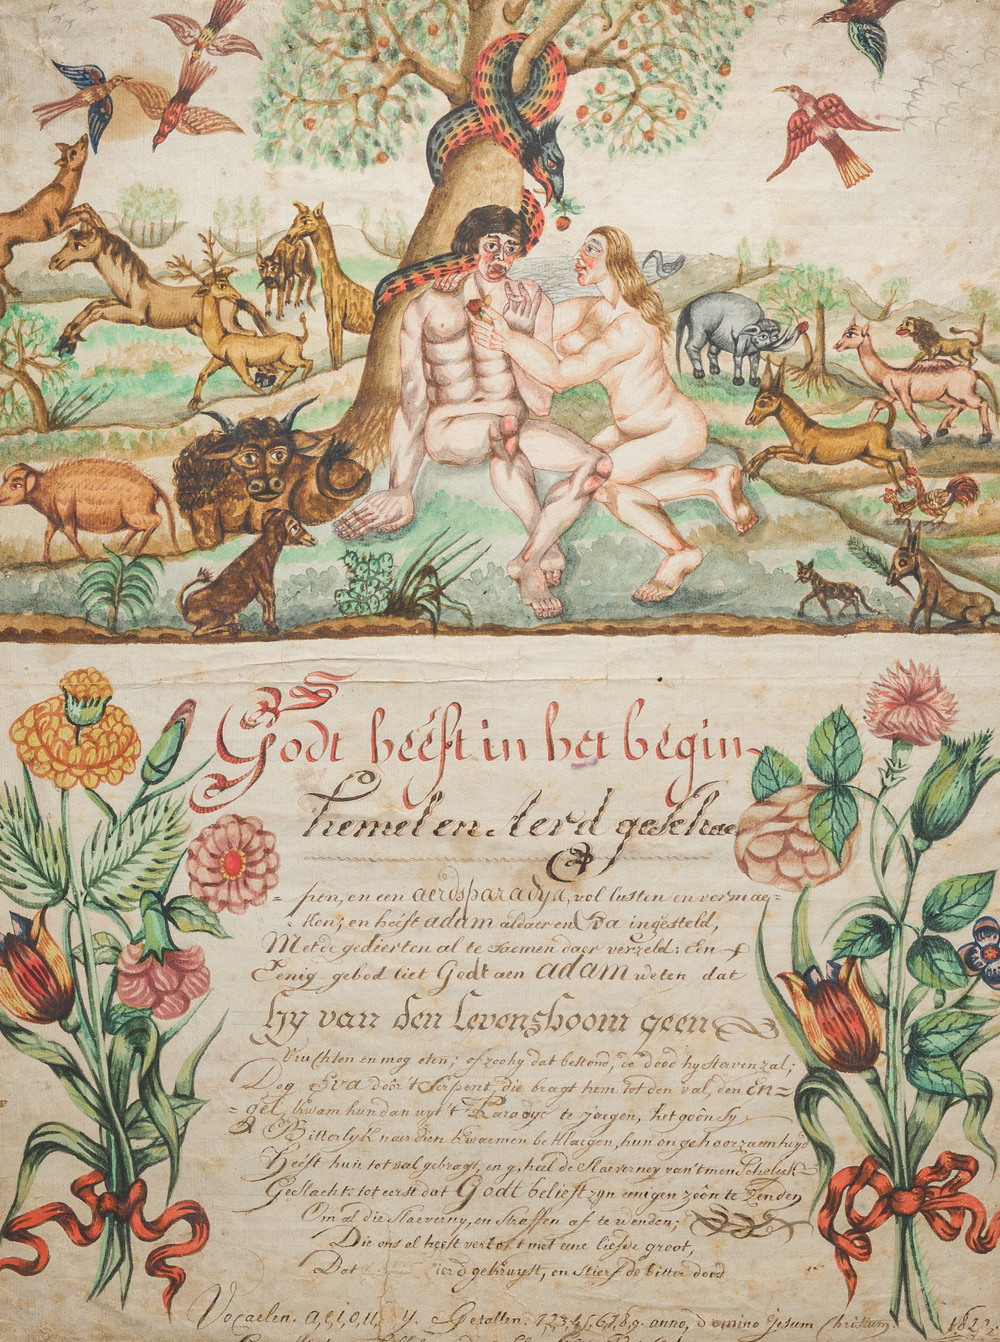 Godt heeft in het begin
hemel en Aerd geschae
= pen, en een aerdsparadys, vol lusten en vermae=
ken; en heeft adam aldaer en Eva ingesteld,
Met de gedierten al te saemen daer verzeld: Een
Eenig gebod liet Godt aen adam weten dat
hy van den Levensboom geen
Vruchten en mog eten; of zoo hy dat bestond, de dood hy sterven zal;
Dog Eva door 't Serpent, die bragt hem tot den val, den En=
= gel, kwam hun dan uyt 't Paradys te jaegen, het goôn Sy
Bitterlyk naer dien kwaemen beklaegen, hun ongehoorzaemheyd
Heeft hun tot val gebragt, en g'heel de Slaeverney van 't menschelyk
Geslacht: tot eerst dat Godt belieft zyn eenigen zôôn te Zenden
Om al die Slaeverny, en Straffen af te wenden;
Die ons al heeft verlost met eene liefde groot,
Dat ierd gekruyst, en Stierf de bitter dood
Vocaelen. a, e, i, o, u, y. Getallen. 1 2 3 4 5 6 7 8 9. anno, domino Jesum Christum. 182